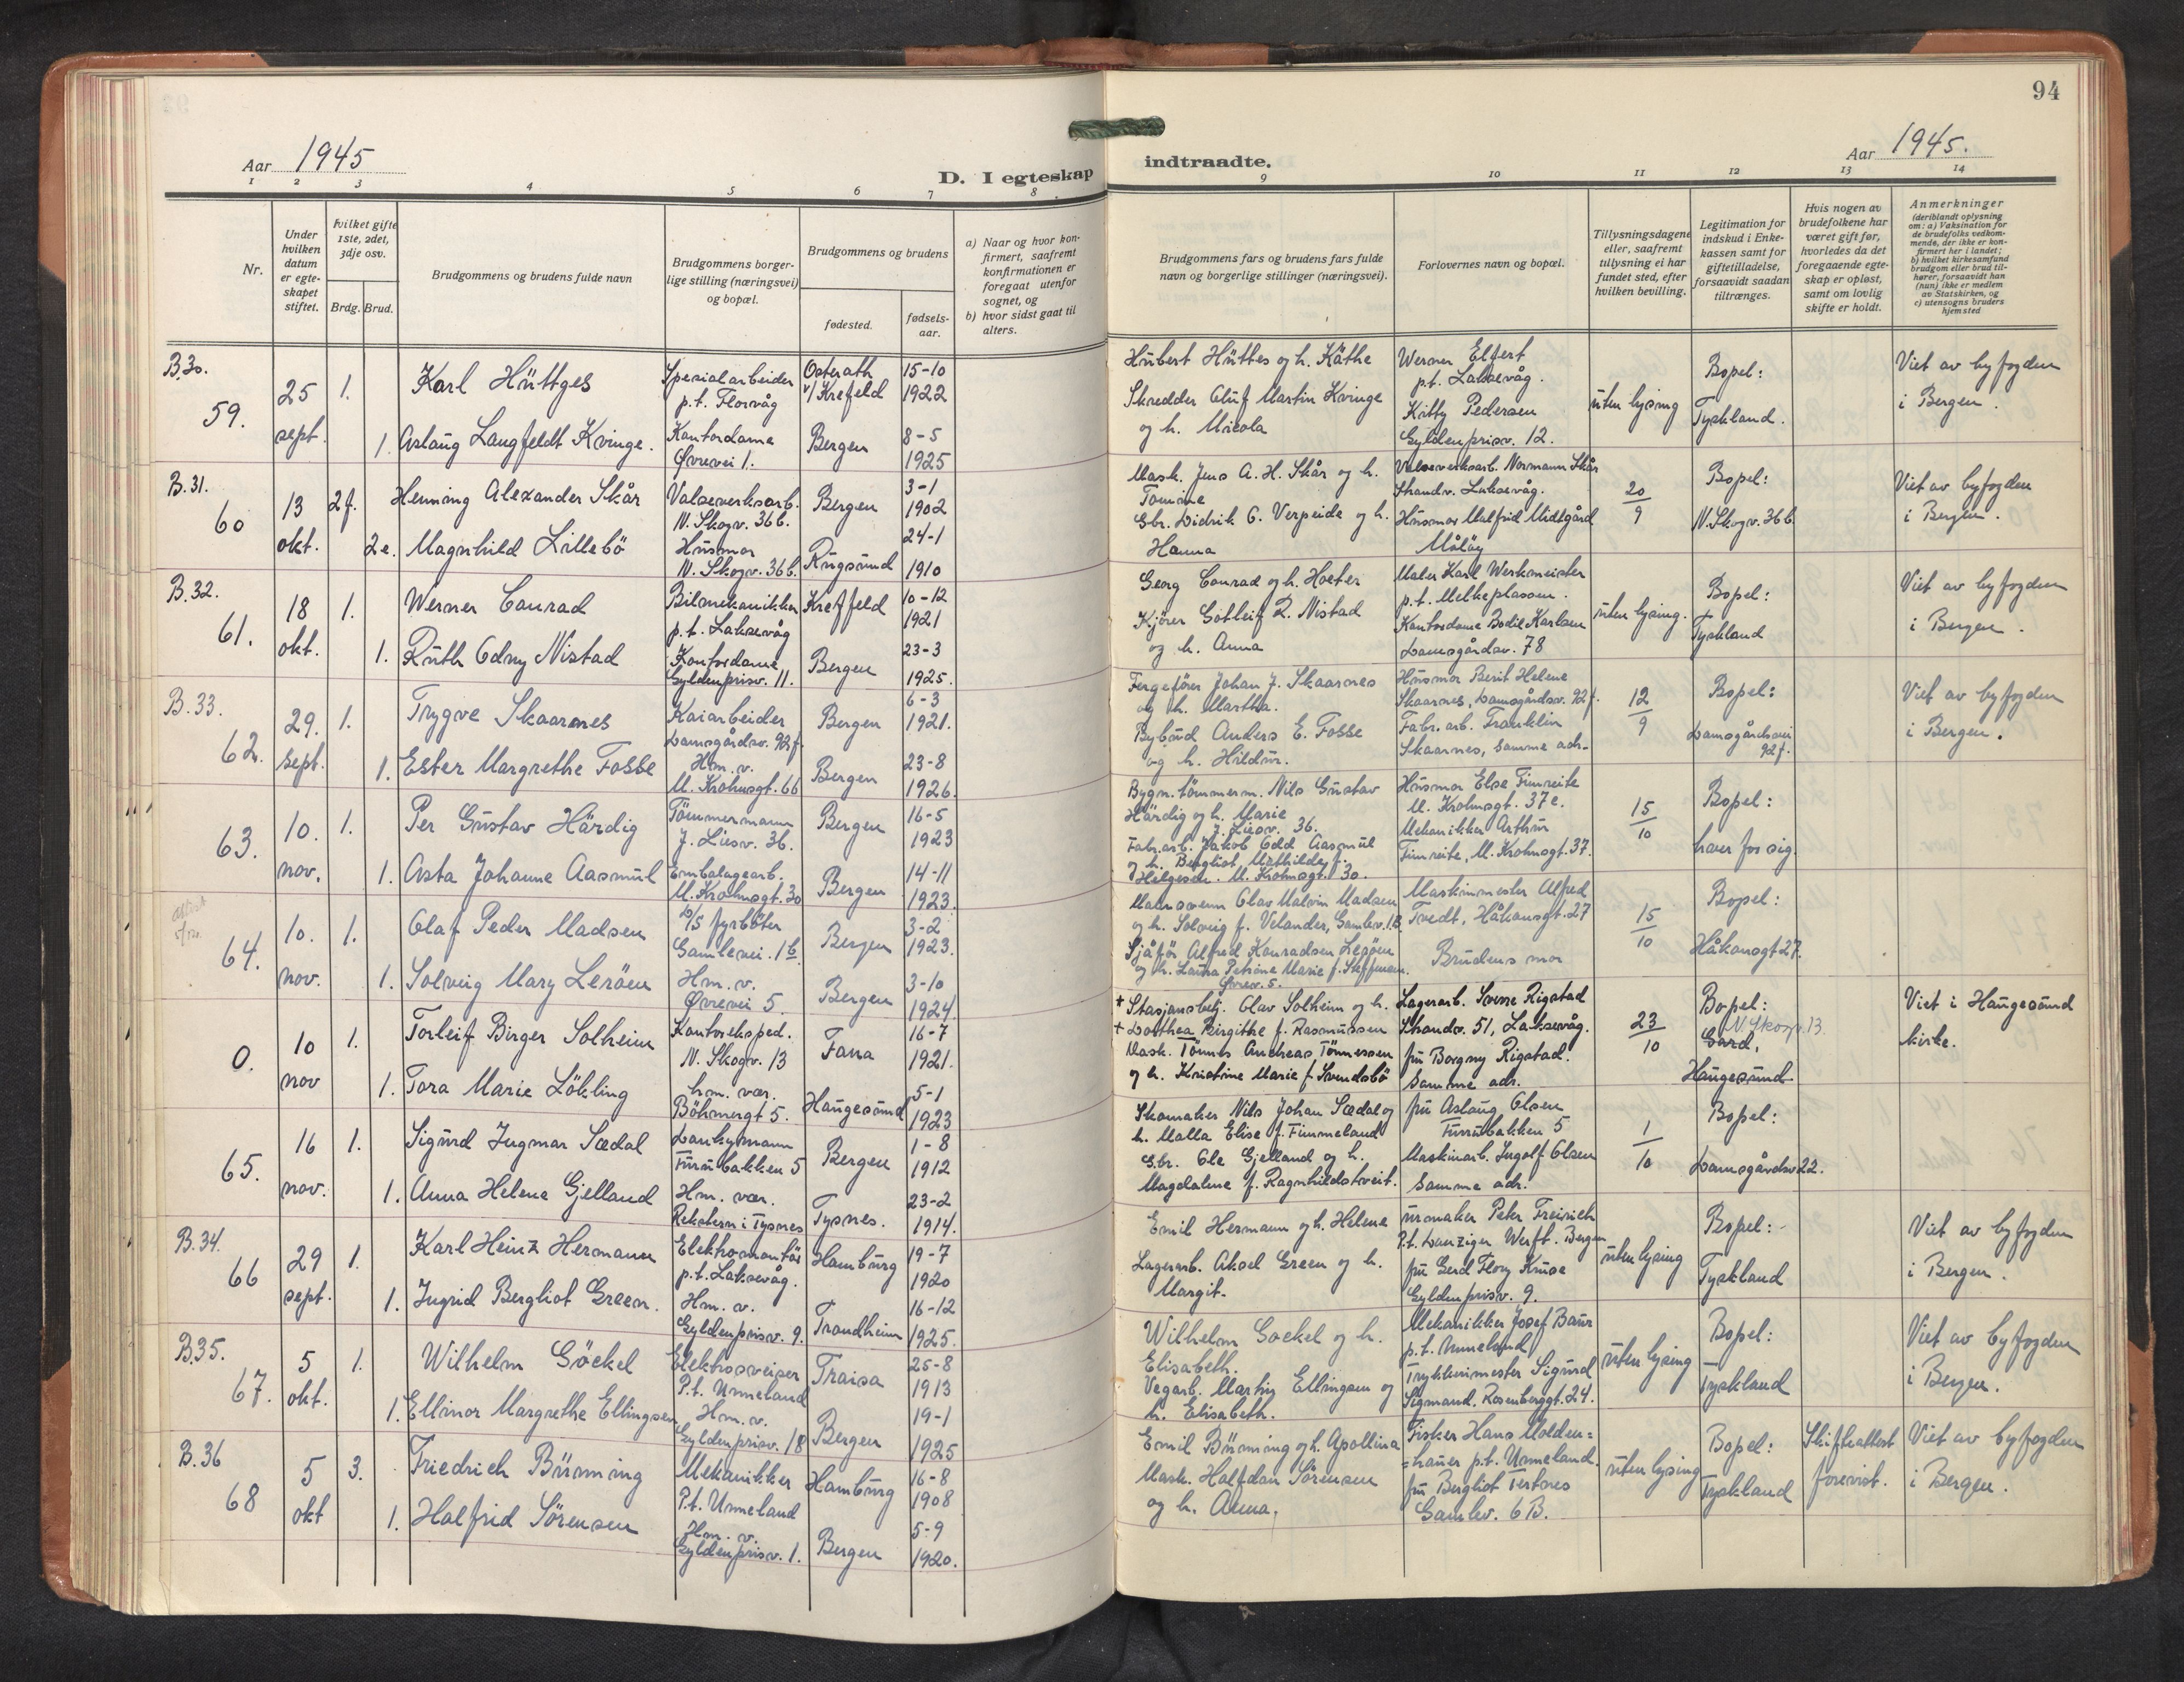 94
Aar 1945
D. I egteskap indtraadte.
Aar 1945.
1 2 3 4 5 6 7 8 9 10 11 12 13 14
Nr.
Under hvilken datum er egteskapet stiftet.
hvilket gifte 1ste, 2det, 3dje osv.
Brdg. Brud.
Brudgommens og brudens fulde navn
Brudgommens borgerlige stilling (næringsvei) og bopæl.
Brudgommens og brudens
fødested.
fødselsaar.
a) Naar og hvor konfirmert, saafremt konfirmationen er foregaat utenfor sognet, og
b) hvor sidst gaat til alters.
Brudgommens fars og brudens fars fulde navn og borgerlige stillinger (næringsvei).
Forlovernes navn og bopæl.
Tillysningsdagene eller, saafremt tillysning ei har fundet sted, efter hvilken bevilling.
Legitimation for indskud i Enkekassen samt for giftetilladelse, forsaavidt saadan tiltrænges.
Hvis nogen av brudefolkene har været gift før, hvorledes da det foregaaende egteskap er opløst, samt om lovlig skifte er holdt.
Anmerkninger (deriblandt oplysning om: a) Vaksination for de brudefolks vedkommende, der ikke er konfirmert her i landet; b) hvilket kirkesamfund brudgom eller brud tilhører, forsaavidt han (hun) ikke er medlem av Statskirken, og c) utensogns bruders hjemsted
B.30.
59.
25 sept.
1.
Karl Hüttges
Spesialarbeider p.t. Florvåg
Osterath v/ Krefeld
15-10 1922
1. Aslaug Langfeldt Kvinge.
Kontordame Øvrevei 1.
Bergen
8-5 1925
Hubert Hüttes og h. Käthe
Skredder Oluf Martin Kvinge og h. Nicola
Werner Elfert p.t. Laksevåg.
Kitty Pedersen Gyldenprisv. 12.
uten lysing
Bopel: Tyskland.
Viet av byfogden i Bergen.
B.31.
60
13 okt.
2f.
Henning Alexander Skår
Valseverksarb. N. Skogv. 36b.
Bergen
3-1 1902
2e. Magnhild Lillebö
Husmor N. Skogv. 36b.
Rugsund
24-1 1910
Mask. Jens A. H. Skår og h. Tomine
Gbr. Didrik G. Verpeide og h. Hanna
Valseverksarb. Normann Skår Strandv. Laksevåg.
Husmor Malfrid Midtgård Måløy
20/9
Bopel: N. Skogv. 36b.
Viet av byfogden i Bergen.
B.32.
61.
18 okt.
1.
Werner Conrad
Bilmekanikker p.t. Laksevåg
Kreffeld
10-12 1921
1. Ruth Odny Nistad
Kontordame Gyldenprisv. 11.
Bergen
23-3 1925.
Georg Conrad og h. Hoeter
Kjörer Gotleif R. Nistad og h. Anna
Maler Karl Werkmeister p.t. Melkeplassen.
Kontordame Bodil Karlsen Damsgårdsv. 78
uten lysing.
Bopel: Tyskland
Viet av byfogden i Bergen.
B.33.
62.
29. sept.
1.
Trygve Skaarnes
Kaiarbeider Damsgårdsv. 92f.
Bergen
6-3 1921.
1. Ester Margrethe Fosse
Hm. v. M. Krohnsgt. 66
Bergen
23-8 1926.
Fergefører Johan J. Skaarnes og h. Martha.
Bybud Anders E. Fosse og h. Hildur.
Husmor Berit Helene Skaarnes, Damsgårdsv. 92f.
Fabr. arb. Franklin Skaarnes, samme adr.
12/9
Bopel: Damsgårdsvei 92f.
Viet av byfogden i Bergen.
63.
10. nov.
1.
Per Gustav Härdig
Tömmermann J. Liesv. 36.
Bergen
16-5 1923
1. Asta Johanne Aasmul
Embalagearb. M. Krohnsgt. 30
Bergen
14-11 1923.
Bygn. tömmerm. Nils Gustav Härdig og h. Marie J. Liesv. 36.
Fabr. arb. Jakob Odd Aasmul og h. Bergliot Mathilde f. Helgesen. M. Krohnsgt. 30.
Husmor Else Fimreite M. Krohnsgt. 37e.
Mekanikker Arthur Fimreite, M. Krohnsgt. 37.
15/10
Bopel: hver for sig.
64.
10. nov.
1.
Olaf Peder Madsen
D/S fyrböter Gamlevei. 1b.
Bergen
3-2 1923.
1. Solveig Mary Leröen
Hm. v. Øvrevei 5.
Bergen
3-10 1924.
Malersvenn Olav Malvin Madsen og h. Solveig f. Velander, Gamlev. 1B.
Sjåför Alfred Konradsen Leröen og h. Laura Petrine Marie f. Steffensen. Øvrev. 5.
Maskinmester Alfred Tvedt, Håkonsgt. 27
Brudens mor
15/10
Bopel: Håkonsgt 27.
0.
10 nov
1.
Torleif Birger Solheim
Kontoreksped. N. Skogv. 13
Fana
16-7 1921.
1. Tora Marie Lökling
hm. vær. Böhmergt 5.
Haugesund
5-1 1923
+ Stasjonsbetj. Olav Solheim og h.
+ Dorthea Birgithe f. Rasmussen
Mask. Tönnes Andreas Tönnessen og h. Kristine Marie f. Svendsbö
Lagerarb. Sverre Rigstad Strandv. 51, Laksevåg.
fru Borgny Rigstad. Samme adr.
23/10
Bopel: N. Skogv. 13. Gard, Haugesund
Viet i Haugesund kirke.
65.
16 nov.
1.
Sigurd Ingmar Sædal
Dankymann Furubakken 5
Bergen
1-8 1912
1. Anna Helene Gjelland
Hm. vær. Rekstern i Tysnes
Tysnes.
23-2 1914.
Skomaker Nils Johan Sædal og h. Malla Elise f. Fimmeland
Gbr. Ole Gjelland og h. Magdalene f. Ragnhildstveit.
fru Aslaug Olsen Furubakken 5
Maskinarb. Ingolf Olsen Samme adr.
1/10
Bopel: Damsgårdsv 22.
B.34.
66
29 sept.
1.
Karl Heinz Hermann
Elektromontör p.t. Laksevåg.
Hamburg
19-7 1920
1. Ingrid Bergliot Green.
Hm. v. Gyldenprisv. 9.
Trondheim
16-12 1925.
Emil Hermann og h. Helene
Lagerarb. Aksel Green og h. Margit.
Urmaker Peter Freirich P.t. Danziger Werft. Bergen
fru Gerd Flory Kruse Gyldenprisv. 9.
uten lysing
Bopel: Tyskland
Viet av byfogden i Bergen.
B.35.
67.
5 okt.
1.
Wilhelm Göckel
Elektrosveiser P.t. Unneland
Traisa
25-8 1913
1. Ellinor Margrethe Ellingsen
Hm. v. Gyldenprisv. 18
Bergen
19-1 1925
Wilhelm Gockel og h. Elisabeth.
Vegarb. Martin Ellingsen og h. Elisabeth.
Mekanikker Josef Baur p.t. Unneland
Trykkerimester Sigurd Sigmand. Rosenberggt. 24.
uten lysing
Bopel: Tyskland
Viet av byfogden i Bergen.
B.36
68
5 okt
3.
Friedrich Bünning
Mekanikker P.t. Unneland
Hamburg
16-8 1908
1. Halfrid Sörensen
Hm. v. Gyldenprisv. 1.
Bergen
5-9 1920.
Emil Bünning og h. Apollina
Mask. Halfdan Sörensen og h. Anna.
Fisker Hans Molden=hauer p.t. Unneland.
fru Bergliot Tertnes Gamlev. 6B.
uten lysing
Bopel: Tyskland
Skifteattest forevist.
Viet av byfogden i Bergen.